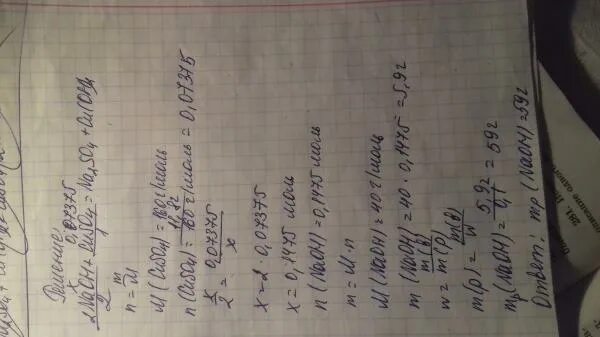 Решение:
x 0,07375
2NaOH + CuSO4 = Na2SO4 + Cu(OH)2
2
n = m/M
M(CuSO4) = 160 г/моль
n(CuSO4) = 11,8г/160 г/моль = 0,07375
x/2 = 0,07375/x
x = 2 · 0,07375
x = 0,1475 моль
n(NaOH) = 0,1475 моль
m = M · n
M(NaOH) = 40 г/моль
m(NaOH) = 40 · 0,1475 = 5,9г
w = m(в)/m(р)
m(р) = m(в)/w
mр(NaOH) = 5,9г/0,1 = 59г
Ответ: mр(NaOH) = 59г